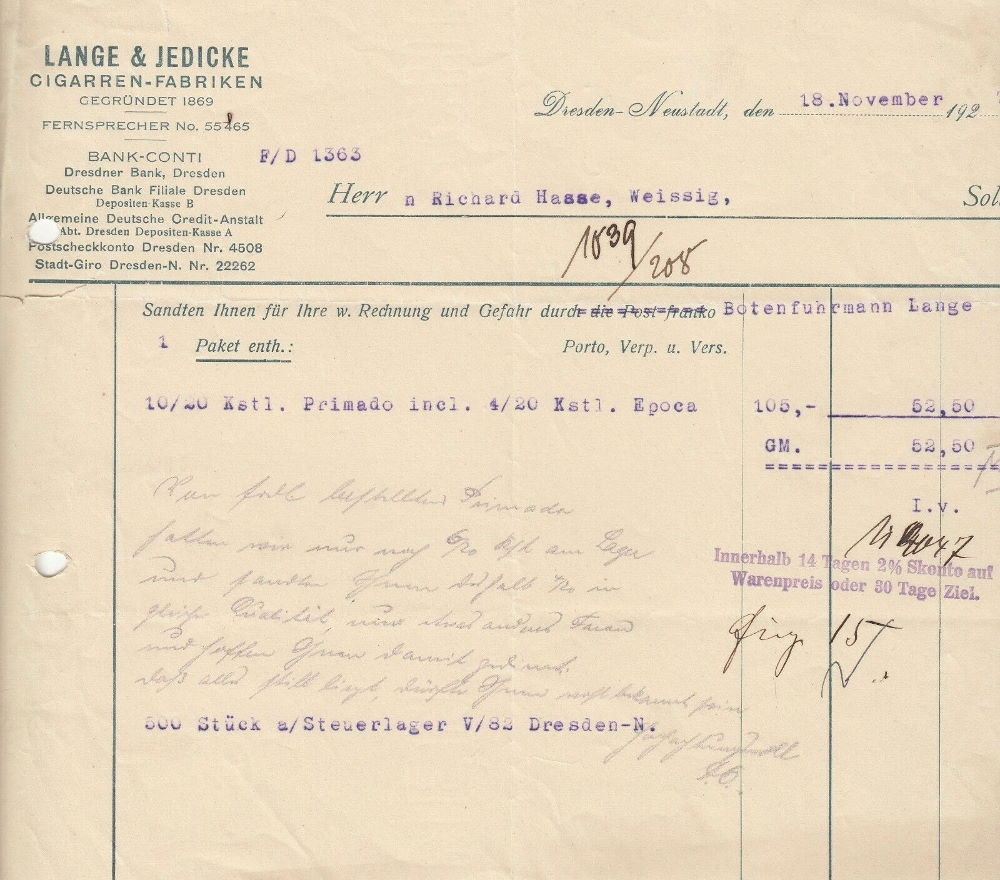 LANGE & JEDICKE
CIGARREN-FABRIKEN
GEGRÜNDET 1869
FERNSPRECHER No. 55465
BANK-CONTI
Dresdner Bank, Dresden
Deutsche Bank Filiale Dresden
Depositen-Kasse B
Allgemeine Deutsche Credit-Anstalt
Abt. Dresden Depositen-Kasse A
Postscheckkonto Dresden Nr. 4508
Stadt-Giro Dresden-N. Nr. 22262
Dresden-Neustadt, den 18.November 192
F/D 1363
Herr n Richard Hasse, Weissig, Soll
1039/208
Sandten Ihnen für Ihre w. Rechnung und Gefahr durch die Post franko Botenfuhrmann Lange
1 Paket enth.: Porto, Verp. u. Vers.
10/20 Kstl. Primado incl. 4/20 Kstl. Epoca 105,- 52,50
GM. 52,50
I.v.
bestellten Primado
halten wir nur noch am Lager
und sandten Ihnen deshalb in
gleicher Qualität, nur etwas andere
und hoffen Ihnen damit gedient.
daß alles still liegt, dürfte Ihnen wohl bekannt sein
Innerhalb 14 Tagen 2% Skonto auf
Warenpreis oder 30 Tage Ziel.
500 Stück a/Steuerlager V/82 Dresden-N.